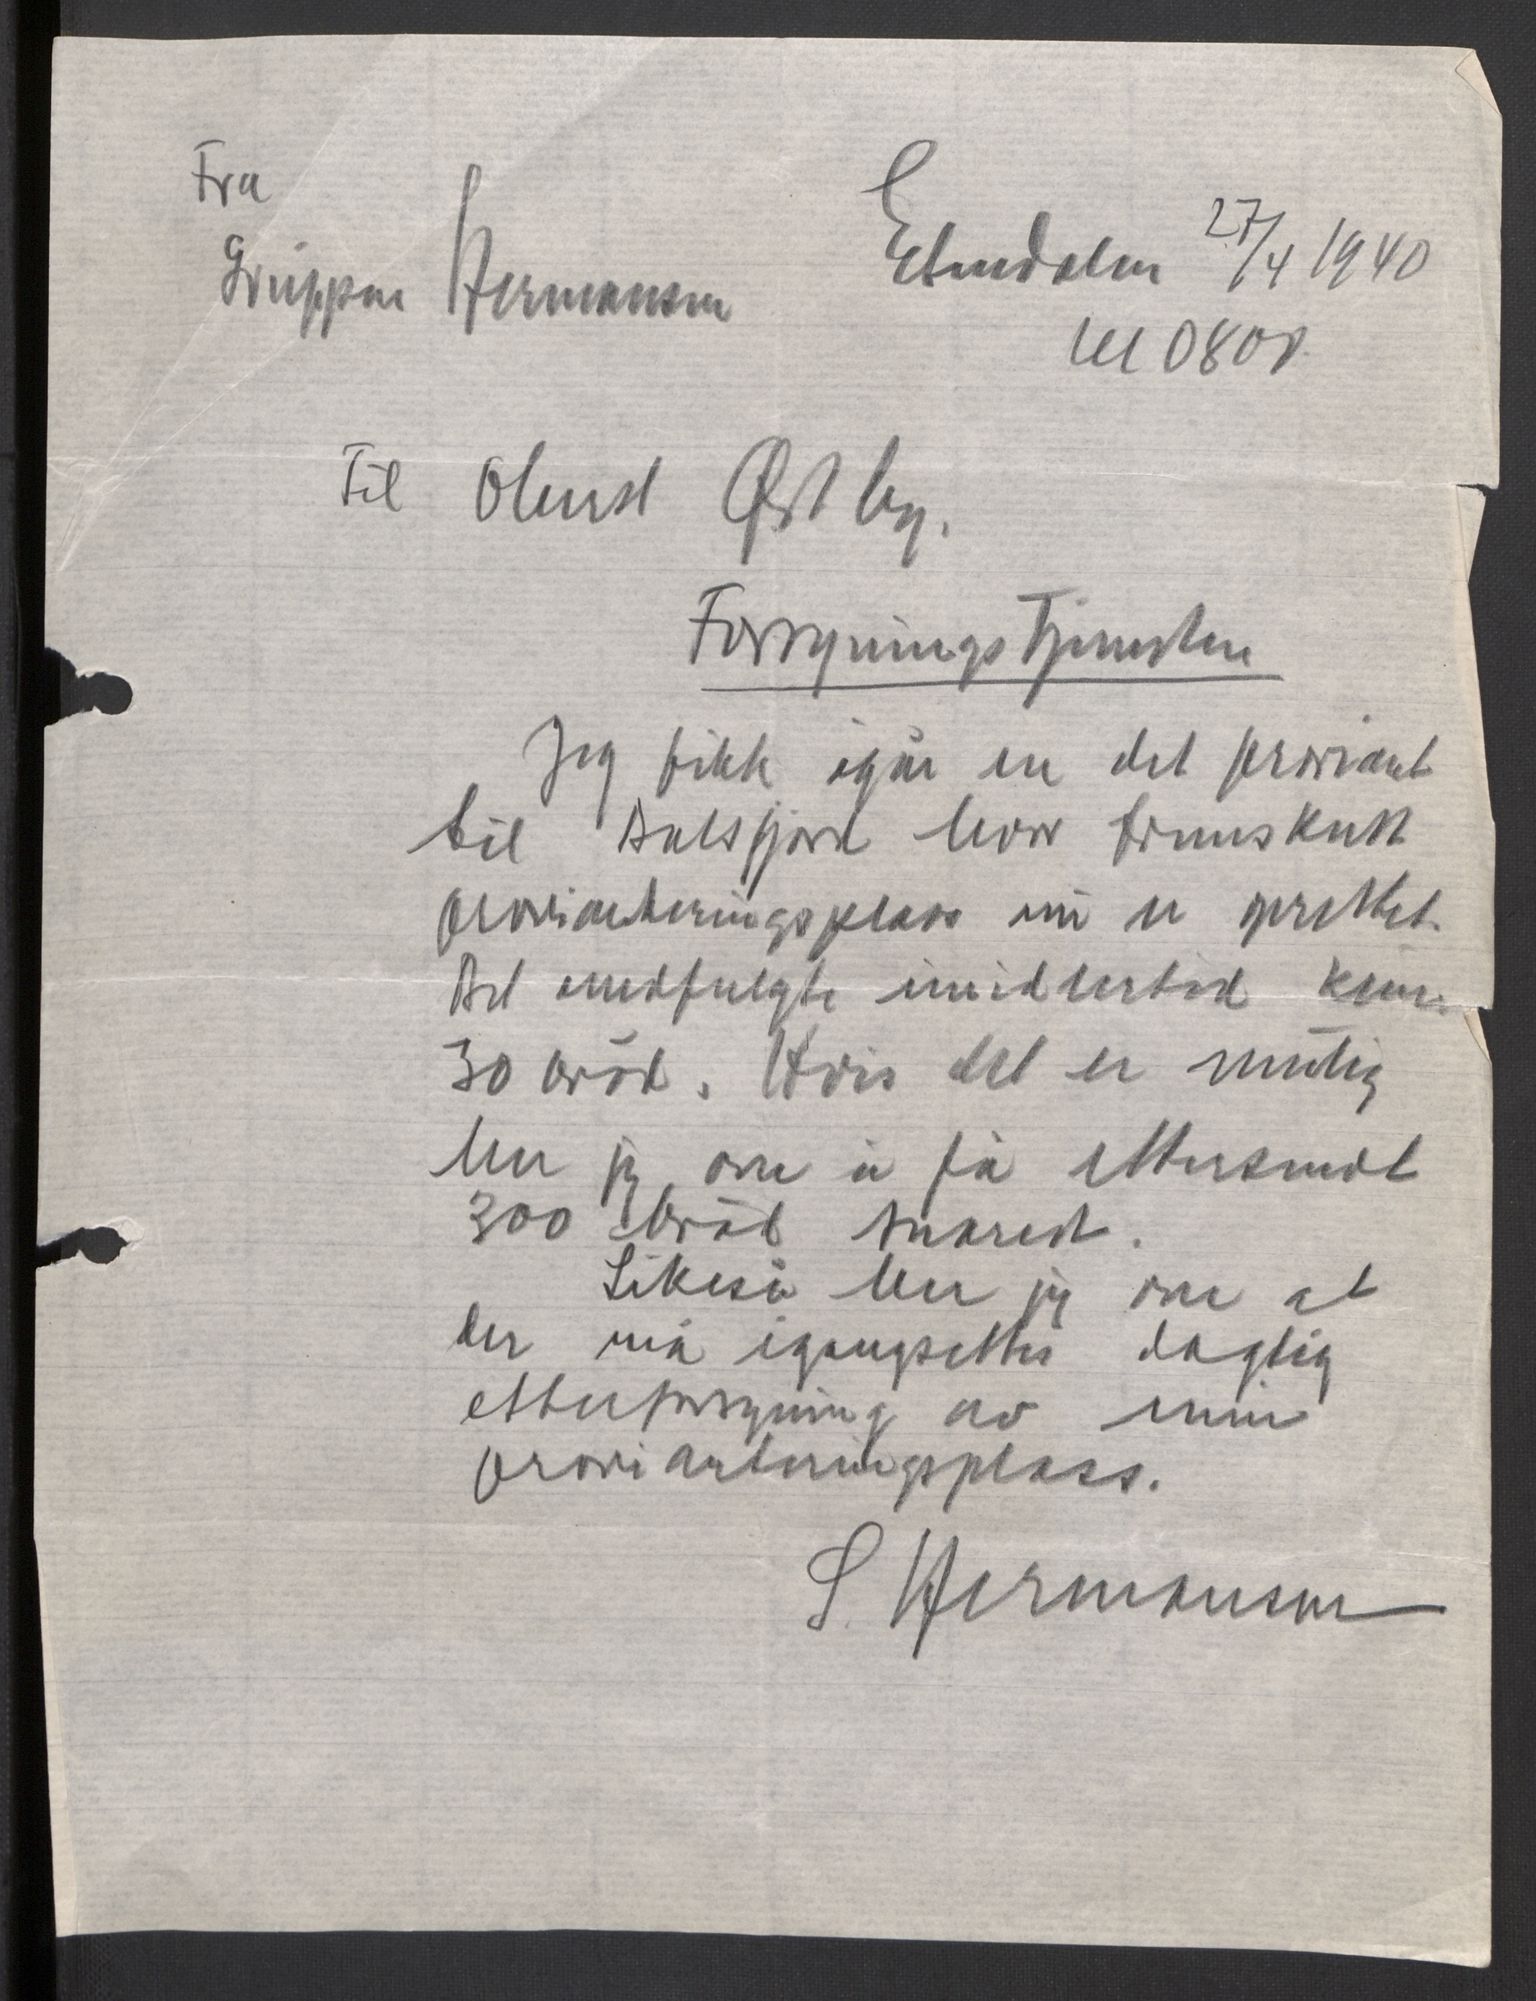 Fra
Gruppen Hermansen
Etnedalen 27/4 1940
kl 0800.
Til Oberst Østbye.
Forsyningstjenesten
Jeg fikk igår en del proviant
til hvor fremskutt
provianteringsplass nu er oprettet.
Det medfulgte imidlertid kun
30 brød. Hvis det er mulig
ber jeg om å få ettersendt
300 brød snarest.
Likeså ber jeg om at
der må igangsettes daglig
etterforsyning av min
provianteringsplass.
S. Hermansen